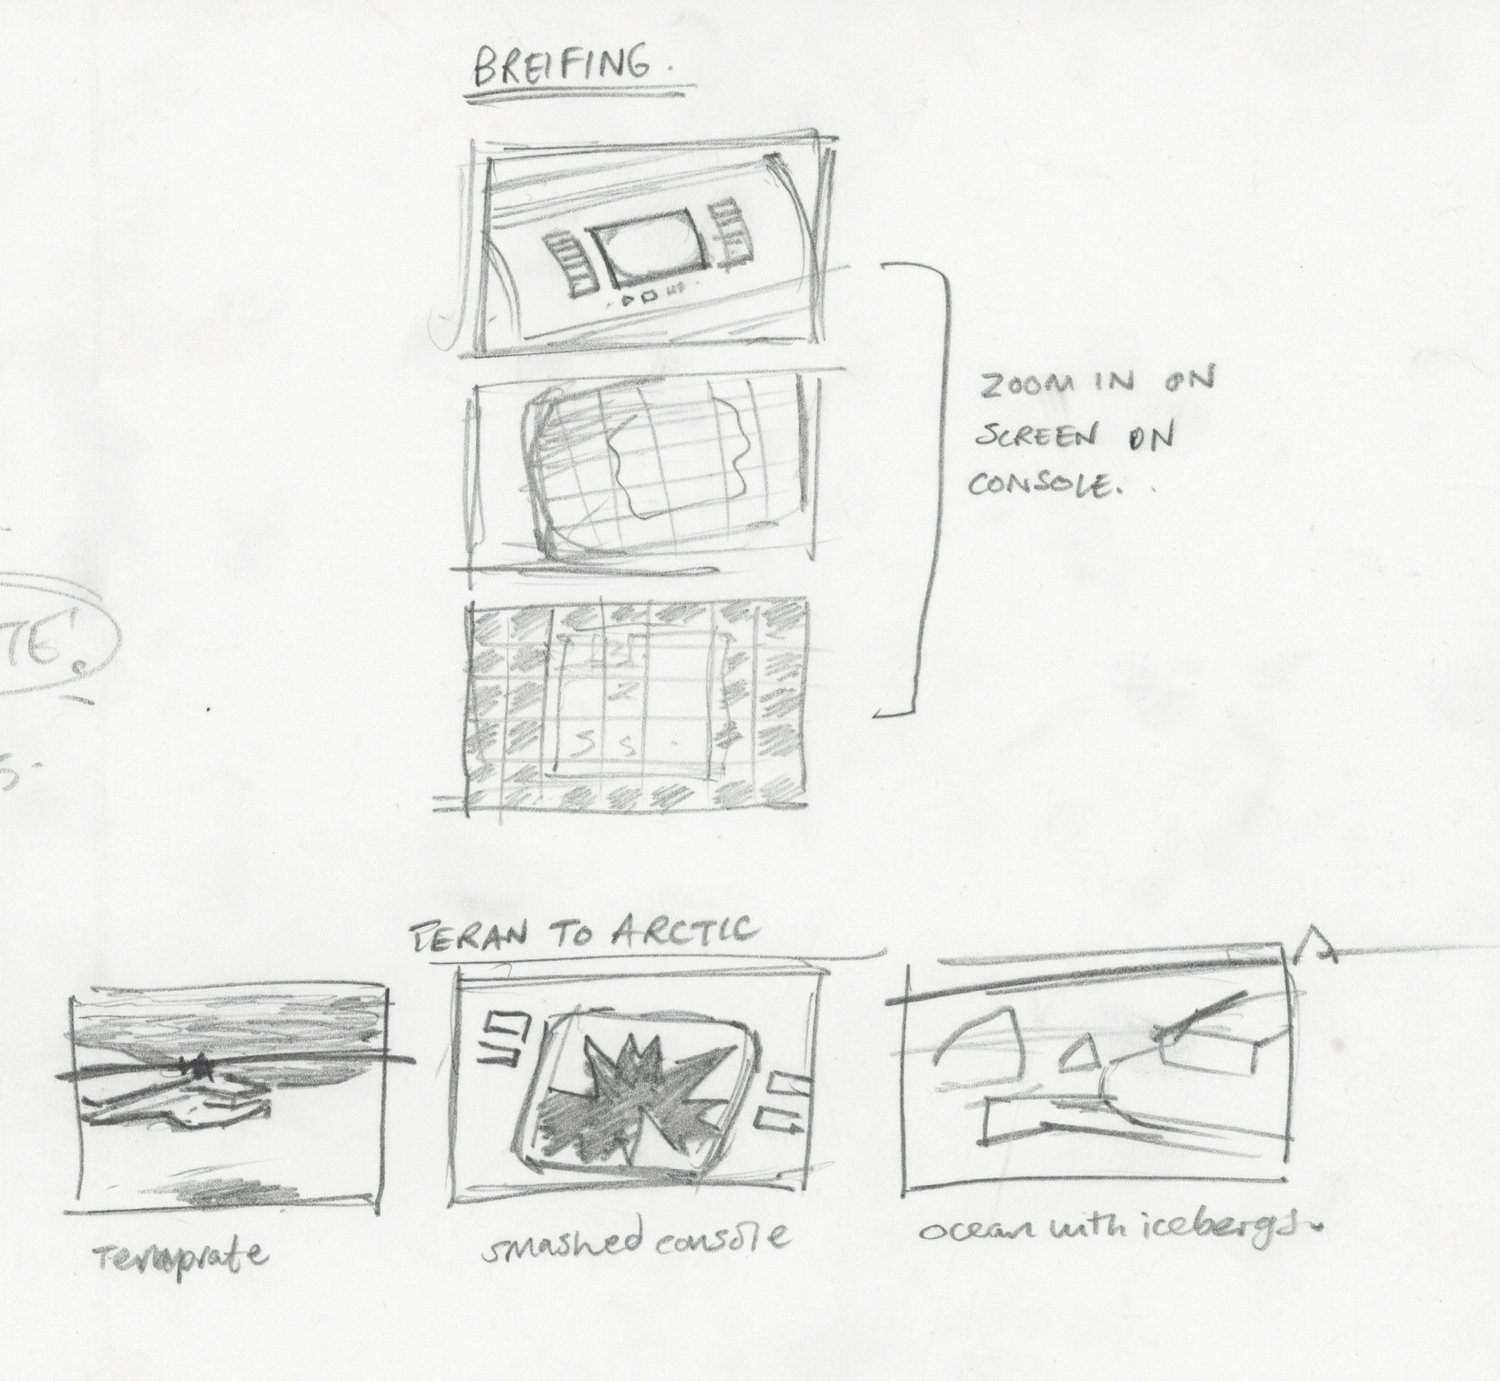 BREIFING.
ZOOM IN ON
SCREEN ON
CONSOLE.
TE.
S.
TERAN TO ARCTIC
Temprate
smashed console
ocean with icebergs.